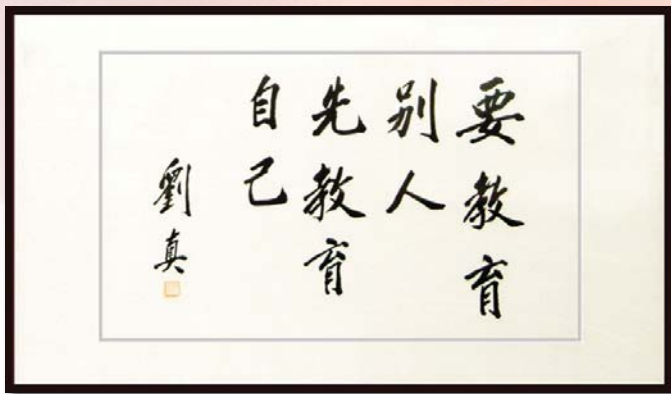 要教育
別人
先教育
自己
劉真